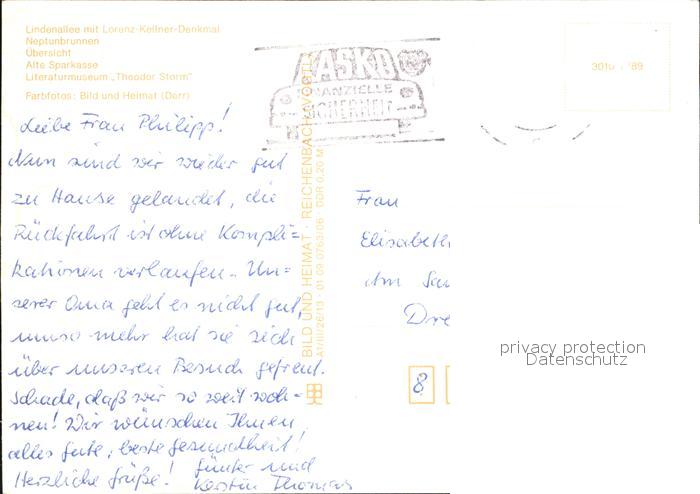 Lindenallee mit Lorenz-Kellner-Denkmal
Neptunbrunnen
Übersicht
Alte Sparkasse
Literaturmuseum „Theodor Storm"
Farbfotos: Bild und Heimat (Darr)
KASKO
FINANZIELLE
SICHERHEIT
Liebe Frau Philipp!
Nun sind wir wieder gut
zu Hause gelandet, die
Rückfahrt ist ohne Kompli=
kationen verlaufen. Un=
serer Oma geht es nicht gut,
umso mehr hat sie sich
über unseren Besuch gefreut.
Schade, daß wir so weit woh-
nen! Wir wünschen Ihnen
alles Gute, beste Gesundheit!
Herzliche Grüße! Günter und
Kerstin Thomas
BILD UND HEIMAT · REICHENBACH (VOGTL)
A1/III/26/13 · 01 09 0763/06 · DDR 0,20 M
Frau
Elisabeth
Am
Dre
8
privacy protection
Datenschutz